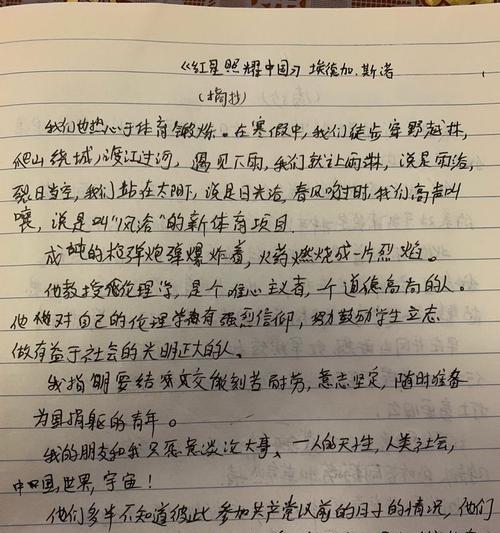 《红星照耀中国》 埃德加.斯诺
(摘抄)
我们也热心于体育锻炼。在寒假中,我们徒步穿野越林,
爬山绕城,渡江过河,遇见下雨,我们就让雨淋,说是雨浴,
烈日当空,我们站在太阳下,说是日光浴,春风吹时,我们高声叫
嚷,说是叫"风浴"的新体育项目.
成吨的枪弹炮弹爆炸着,火药燃烧成一片烈焰。
他教授伦理学,是个唯心主义者,一个道德高尚的人。
他对自己的伦理学有强烈信仰,努力鼓励学生立志
做有益于社会的光明正大的人。
我指明要结交能刻苦耐劳,意志坚定,随时准备
为国捐躯的青年。
我的朋友和我只愿意谈论大事、一人的天性,人类社会,
中国,世界,宇宙!
他们多半不知道彼此参加共产党以前的日子的情况,他们